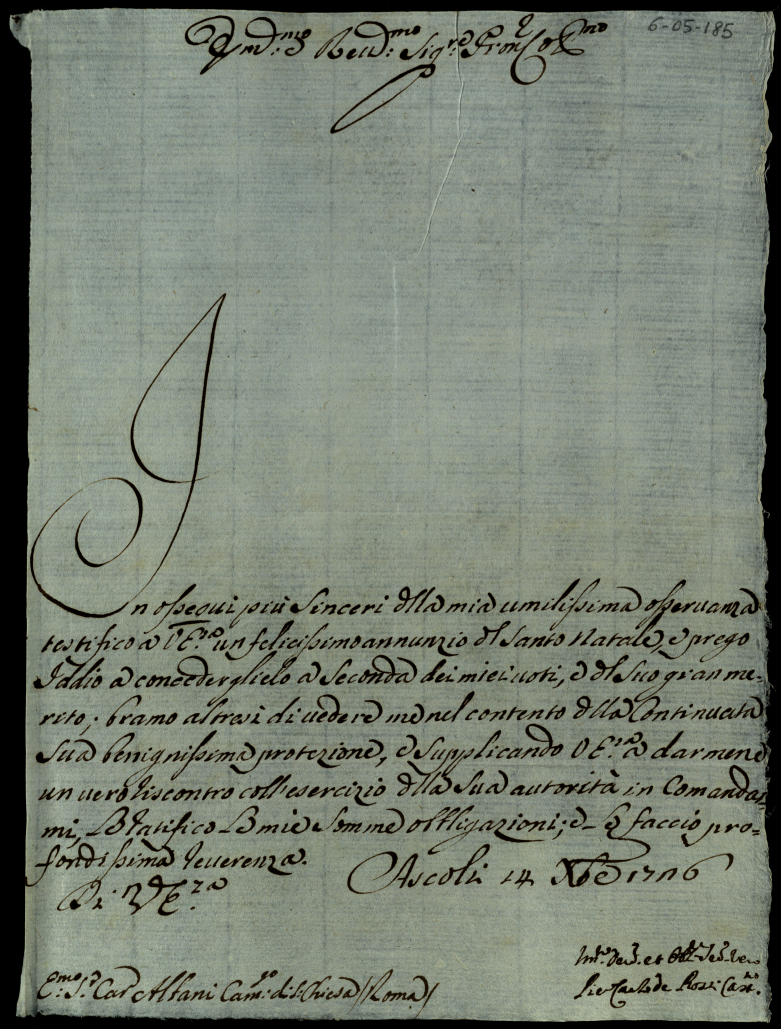 6-05-185
Em.mo e Reu.mo Sig.re Pron Col.mo
In ossequi più sinceri dlla mia umilissima osseruanza
testifico a V E.za un felicissimo annunzio dl Santo Natale, e prego
Iddio a concederglielo a seconda dei miei uoti, e dl suo gran me-
rito; bramo altresi di uedere me nel contento dlla continuata
sua benignissima protezione, e supplicando V E.za a darmene
un uero riscontro coll'esercizio dlla sua autorità in comandar-
mi, Le ratifico le mie somme obbligazioni; e Le faccio pro-
fondissima reuerenza.
Di V E.za
Ascoli 14 Xbre 1706
E.mo S.r Car Albani Cam.go di S. Chiesa /Roma/
et Obb.
Pier Carlo de Rossi Cast.no